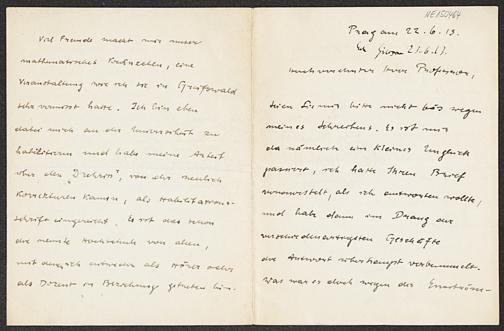 Prag am 22. 6. 13.
hochverehrter Herr Professor,
Seien Sie mir bitte nicht bös wegen
meines Schreibens. Es ist mir
da nämlich ein kleines Unglück
passiert, ich hatte Ihren Brief
als ich antworten wollte,
und hab dann im Drang der
verschiedenartigsten Geschäfte
die Antwort überhaupt verbummelt.
Was war es doch wegen der
Viel Freude macht mir unser
mathematisches Kränzchen, eine
Veranstaltung wie ich sie in Greifswald
sehr vermisst hatte. Ich bin eben
dabei mich an der Universität zu
habilitieren und habe meine Arbeit
über den "Drehriss", von der neulich
Korrekturen kamen, als Habilitations-
schrift eingereicht. Es ist das schon
die neunte Hochschule von allen,
mit denen ich entweder als Hörer oder
als Dozent in Beziehung getreten bin.